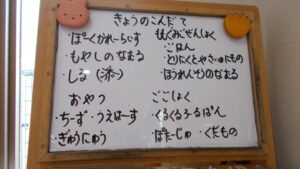 きょうのこんだて
・ぽーくかれーらいす
・もやしのなむる
・しる
おやつ
・ちーず・うえはーす
・ぎゅうにゅう
・ごはん
・とりにくとやさいのにもの
・ほうれんそうのなむる
ごごしょく
・くるくるろーるぱん
・ぽたーじゅ・くだもの